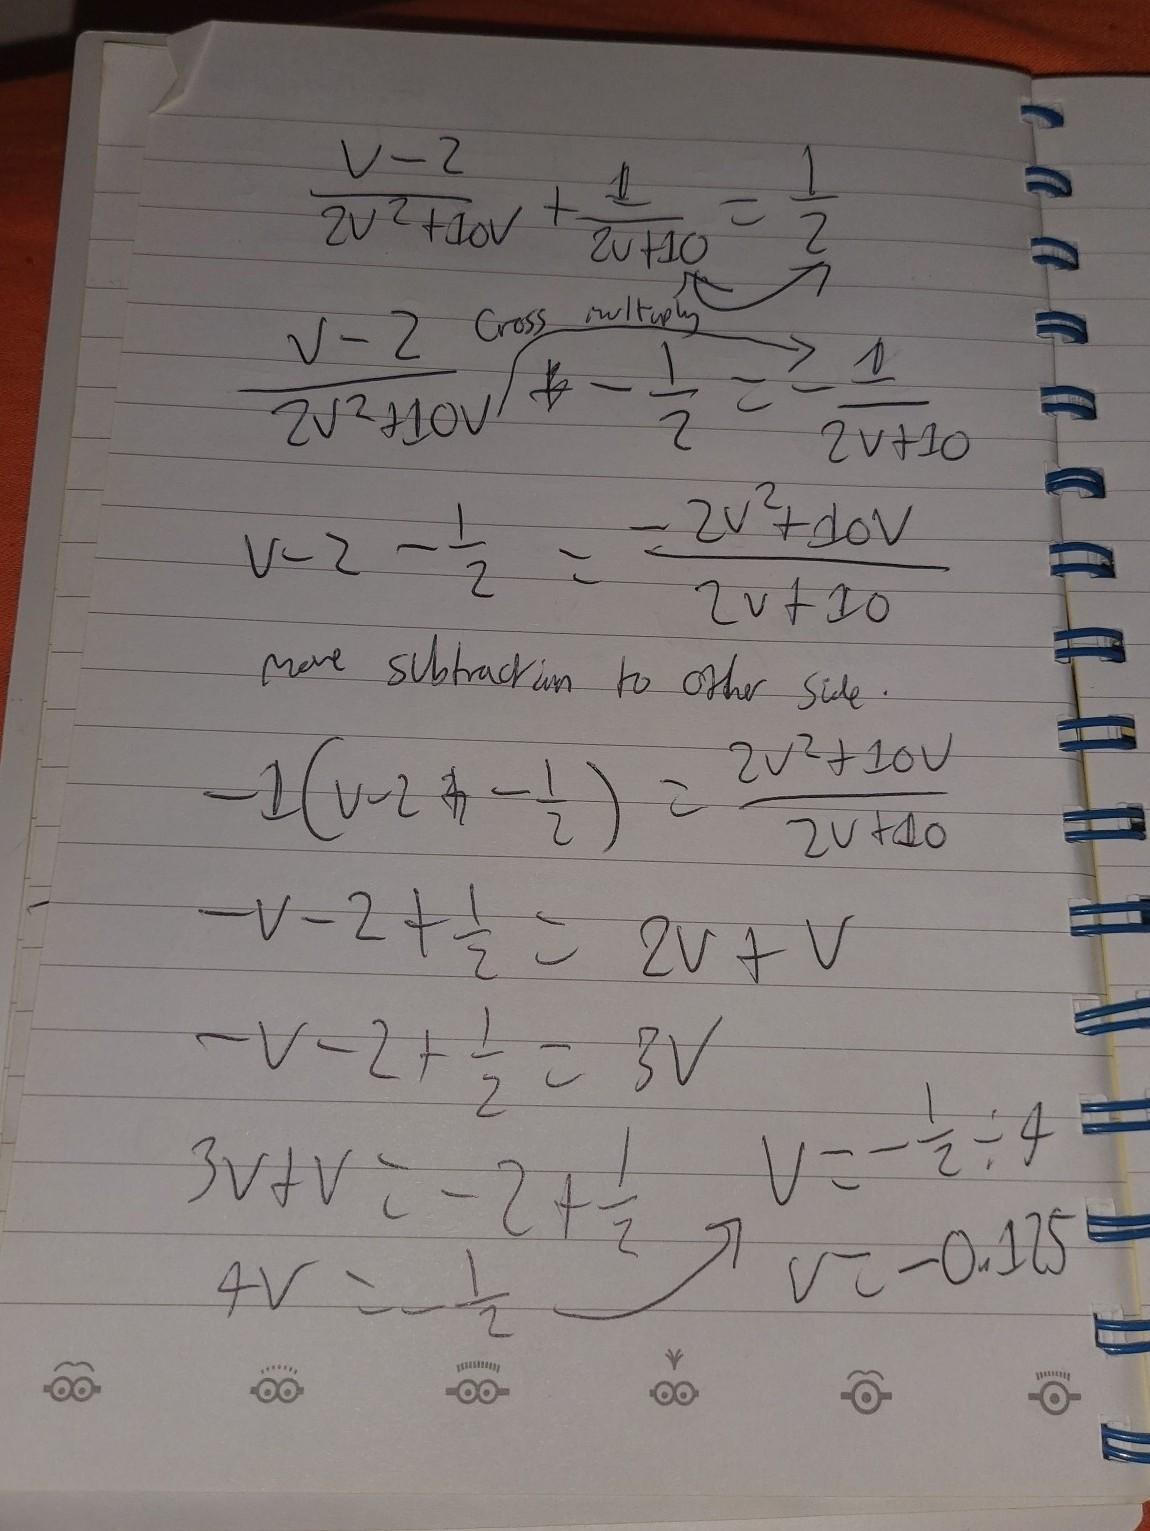 (v-2)/(2v²+10v) + 1/(2v+10) = 1/2
Cross multiply
(v-2)/(2v²+10v) - 1/2 = - 1/(2v+10)
v-2 - 1/2 = -(2v²+10v)/(2v+10)
move subtraction to other side.
-1(v-2 - 1/2) = (2v²+10v)/(2v+10)
-v-2+1/2 = 2v+v
-v-2+1/2 = 3v
3v+v = -2+1/2
4v = -1/2
v = -1/2÷4
v = -0.125